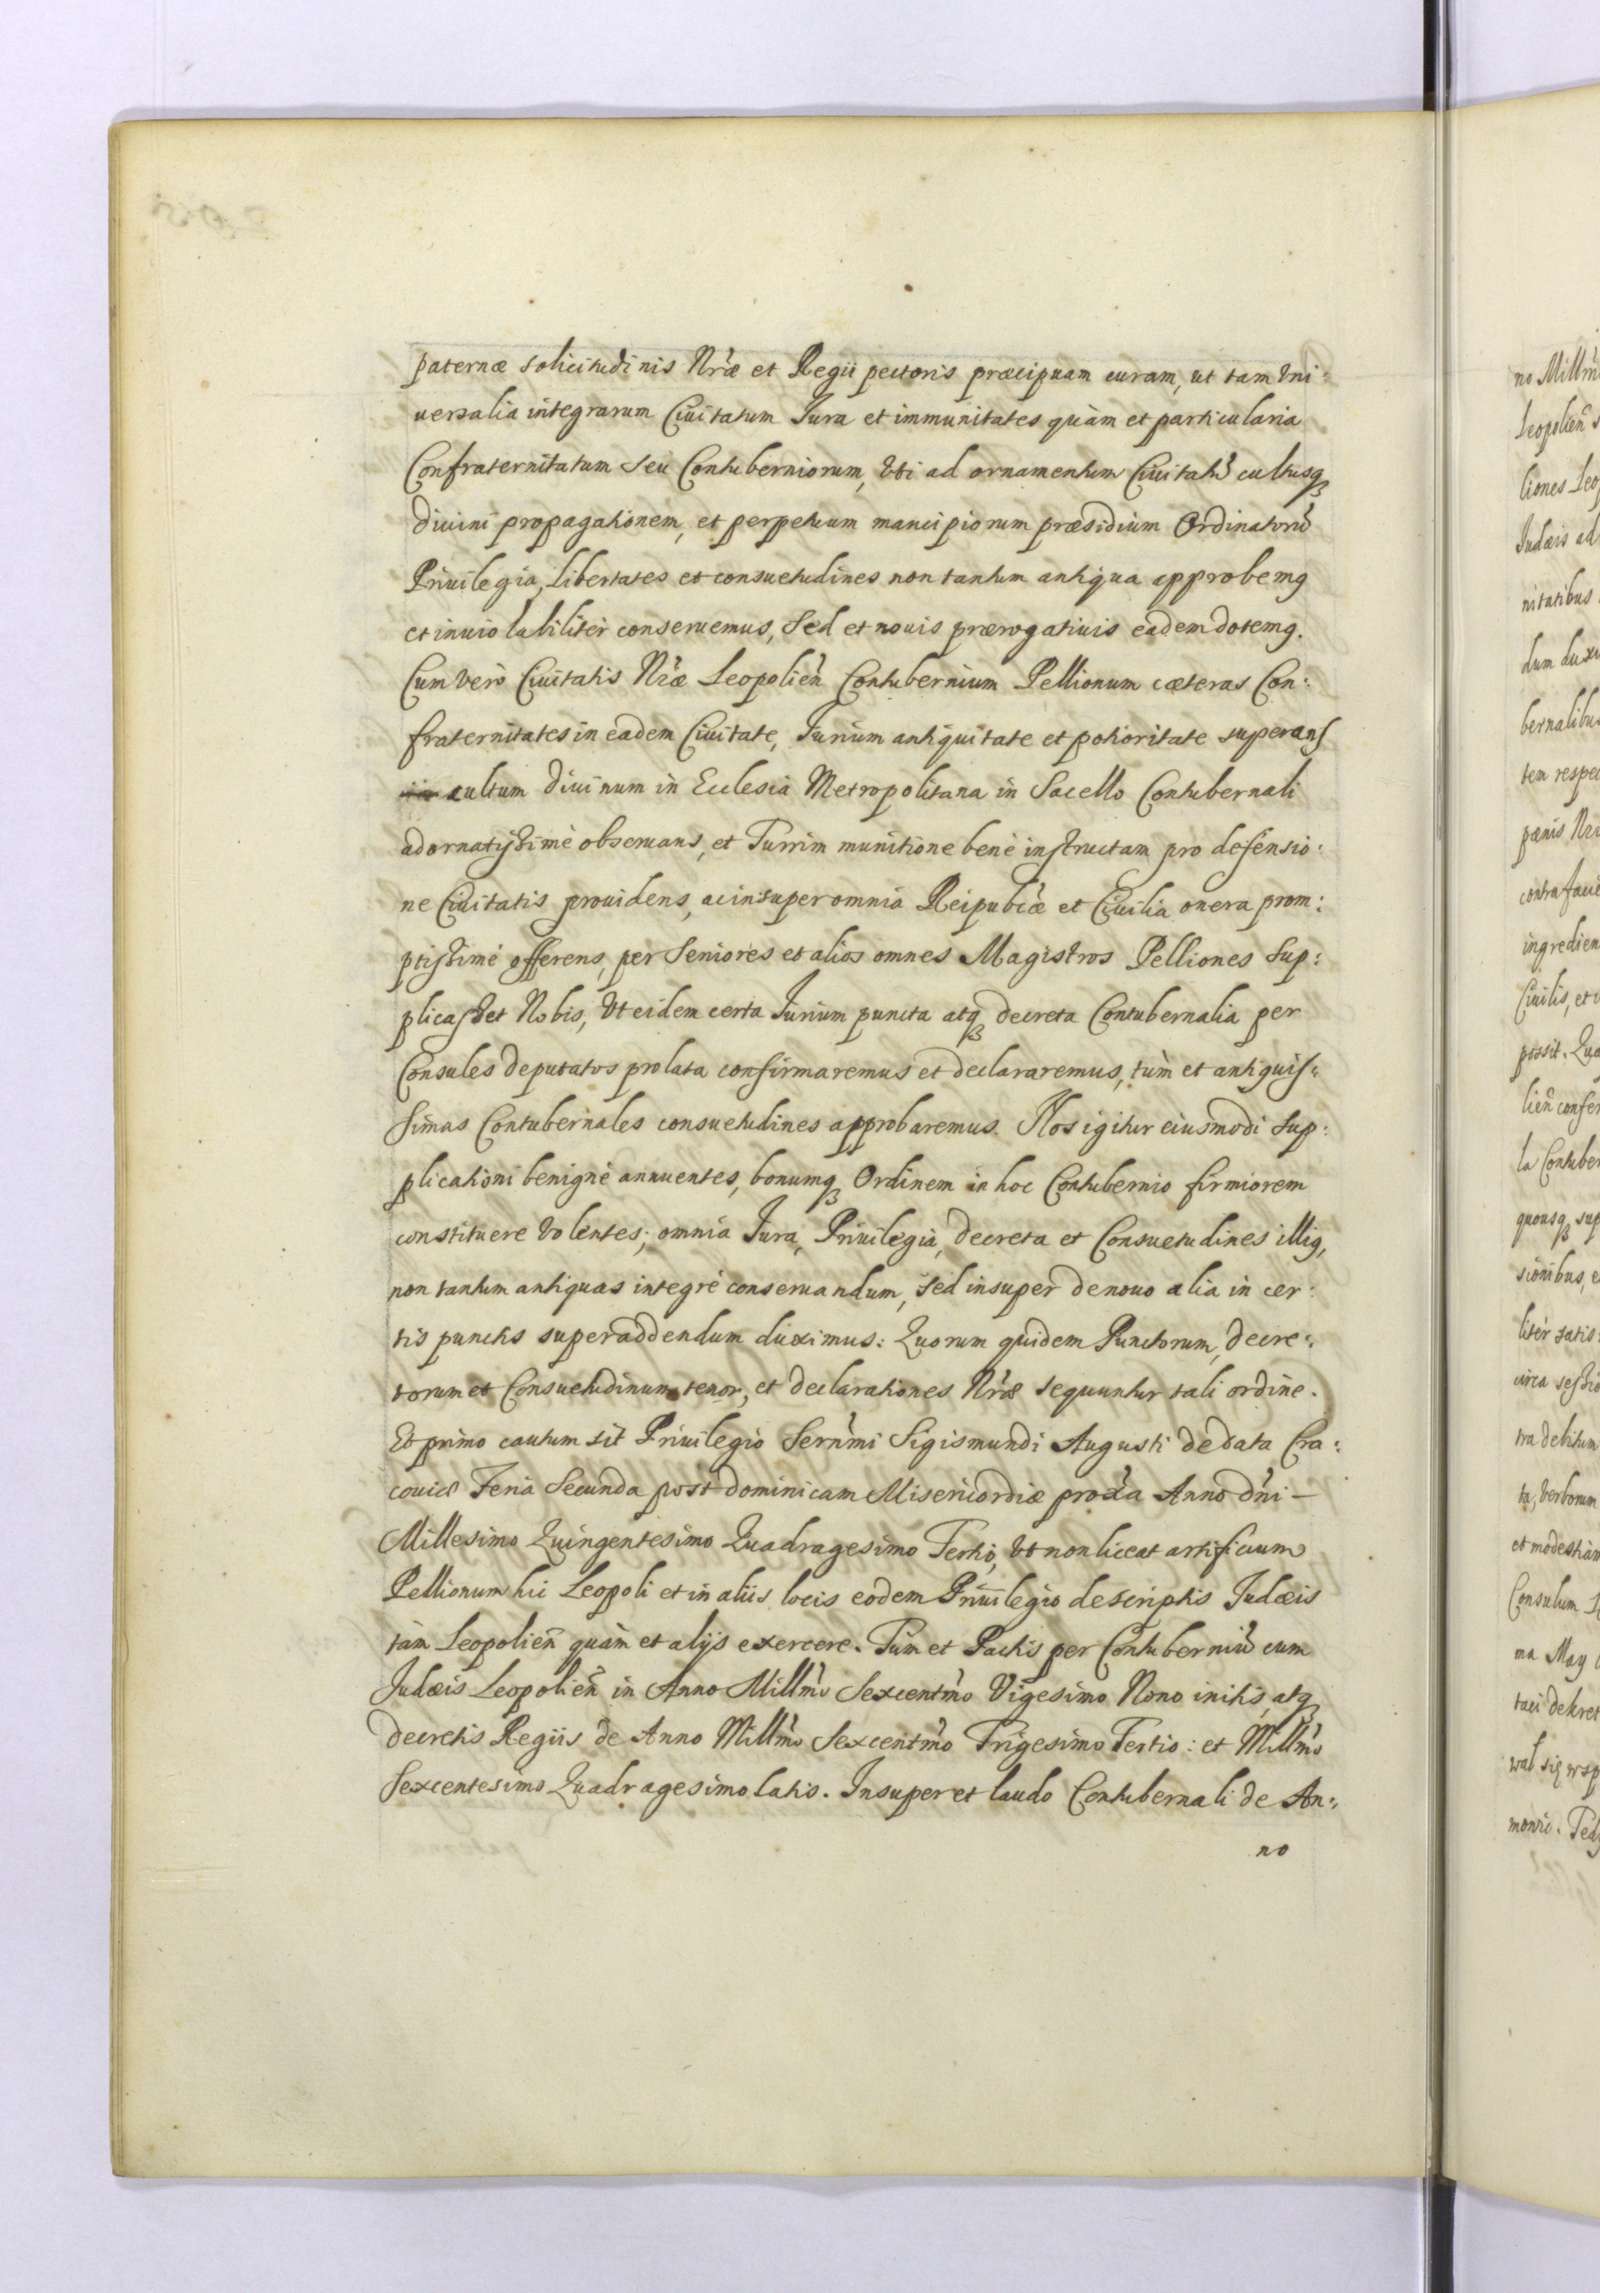 paternæ solicitudinis Nr̃æ et Regii pectoris præcipuam curam, ut tam Vni:
uersalia integrarum Ciuitatum Jura et immunitates quàm et particularia
Confraternitatum seu Contuberniorum, Vti ad ornamentum Ciuitatũ cultusqꝫ
diuini propagationem, et perpetuum mancipiorum præsidium Ordinatorũ
Priuilegia, Libertates et consuetudines non tantum antiqua approbemꝯ
et inuiolabilitèr conseruemus, Sed et nouis prærogatiuis eadem dotemꝯ.
Cum Verò Ciuitatis Nr̃æ Leopolien̄ Contubernium Pellionum cæteras Con:
fraternitates in eadem Ciuitate, Jurium antiquitate et potioritate superans
cultum Diuinum in Ecclesia Metropolitana in Sacello Contubernali
adornatissimè obseruans, et Turrim munitione benè instructam pro defensio:
ne Ciuitatis prouidens, ac insuper omnia Reipublc̃æ et Ciuilia onera prom:
ptissimè offerens, per Seniores et alios omnes Magistros Pelliones Sup:
plicasset Nobis, Vt eidem certa Jurium puncta atqꝫ decreta Contubernalia per
Consules deputatos prolata confirmaremus et declararemus, tùm et antiquis:
simas Contubernales consuetudines approbaremus. Nos igitur eiusmodi Sup:
plicationi benignè annuentes, bonumqꝫ Ordinem in hoc Contubernio firmiorem
constituere Volentes; omnia Jura, Priuilegia, decreta et Consuetudines illiꝯ,
non tantum antiquas integrè conseruandum, sed insuper denouo alia in cer:
tis punctis superaddendum duximus: Quorum quidem Punctorum, decre:
torum et Consuetudinum tenor, et declarationes Nr̃æ sequuntur tali ordine.
Et primo cautum sit Priuilegio Sern̄mi Sigismundi Augusti de data Cra:
couiæ Feria Secunda post dominicam Misericordiæ prox̃a Anno dn̄i –
Millesimo Quingentesimo Quadragesimo Tertio, Vt non liceat artificium
Pellionum hic Leopoli et in aliis locis eodem Priuilegio descriptis Judæis
tàm Leopolien̄ quàm et alijs exercere. Tum et Pactis per Contuberniũ cum
Judæis Leopolien̄ in Anno Millm̃o Sexcentm̃o Vigesimo Nono initis, atqꝫ
decretis Regiis de Anno Millm̃o Sexcentm̃o Trigesimo Tertio: et Millm̃o
Sexcentesimo Quadragesimo latis. Insuper et laudo Contubernali de An:
no
no Millm̃
Leopolien̄
liones Leo
Judæis ad
nitatibus
dum dux
bernalibu
tem respe
pænis
contra
ingredien
Ciuilis, et
possit. Qua
lien̄ confer
la Contuber
quousqꝫ sup
sionibus, e
litèr satis
circa sessio
tra debitum
ta, Verborum
et modestiam
Consulum
ma May
taci dekret
wał się wsp